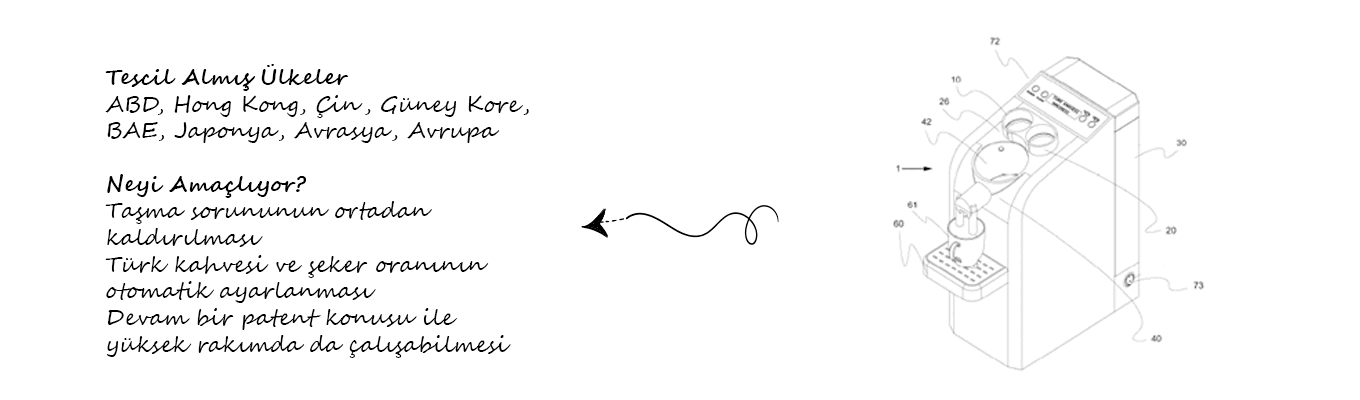 Tescil Almış Ülkeler
ABD, Hong Kong, Çin, Güney Kore,
BAE, Japonya, Avrasya, Avrupa
Neyi Amaçlıyor?
Taşma sorununun ortadan
kaldırılması
Türk kahvesi ve şeker oranının
otomatik ayarlanması
Devam bir patent konusu ile
yüksek rakımda da çalışabilmesi
72
10
26
42
30
1
61
60
20
73
40